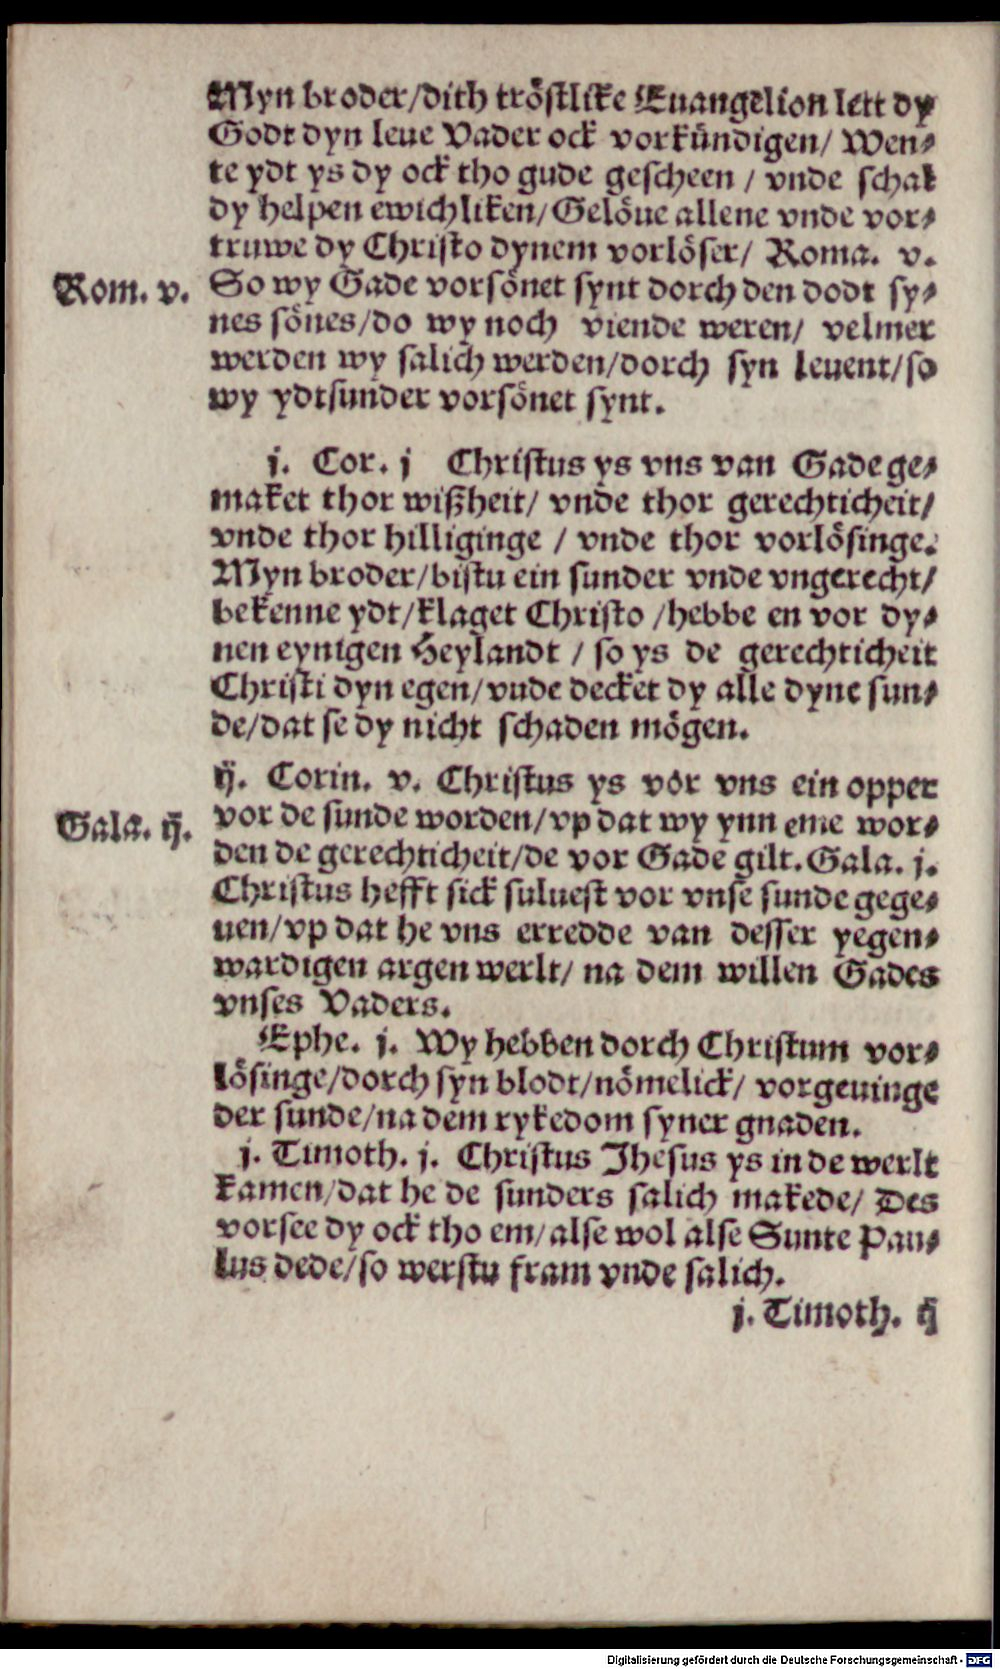 Myn broder/dith tröstlike Euangelion lett dy
Godt dyn leue Vader ock vorkündigen/ Wen⸗
te ydt ys dy ock tho gude gescheen / vnde schal
dy helpen ewichliken/Gelöue allene vnde vor⸗
truwe dy Christo dynem vorlöser/ Roma. v.
Rom. v. So wy Gade vorsönet synt dorch den dodt sy⸗
nes sönes/do wy noch viende weren/ velmer
werden wy salich werden/dorch syn leuent/so
wy ydtsunder vorsönet synt.
j. Cor. j Christus ys vns van Gade ge⸗
maket thor wißheit/ vnde thor gerechticheit/
vnde thor hilliginge / vnde thor vorlösinge.
Myn broder/bistu ein sunder vnde vngerecht/
bekenne ydt/klaget Christo /hebbe en vor dy⸗
nen eynigen Heylandt / so ys de gerechticheit
Christi dyn egen/vnde decket dy alle dyne sun⸗
de/dat se dy nicht schaden mögen.
ij. Corin. v. Christus ys vor vns ein opper
Gala. ij. vor de sunde worden/vp dat wy ynn eme wor⸗
den de gerechticheit/de vor Gade gilt. Gala. j.
Christus hefft sick suluest vor vnse sunde gege⸗
uen/vp dat he vns erredde van desser yegen⸗
wardigen argen werlt/ na dem willen Gades
vnses Vaders.
Ephe. j. Wy hebben dorch Christum vor⸗
lösinge/dorch syn blodt/nömelick/ vorgeuinge
der sunde/na dem rykedom syner gnaden.
j. Timoth. j. Christus Jhesus ys in de werlt
kamen/dat he de sunders salich makede/ Des
vorsee dy ock tho em/alse wol alse Sunte Pau⸗
lus dede/so werstu fram vnde salich.
j. Timoth. ij
Digitalisierung gefördert durch die Deutsche Forschungsgemeinschaft - DFG